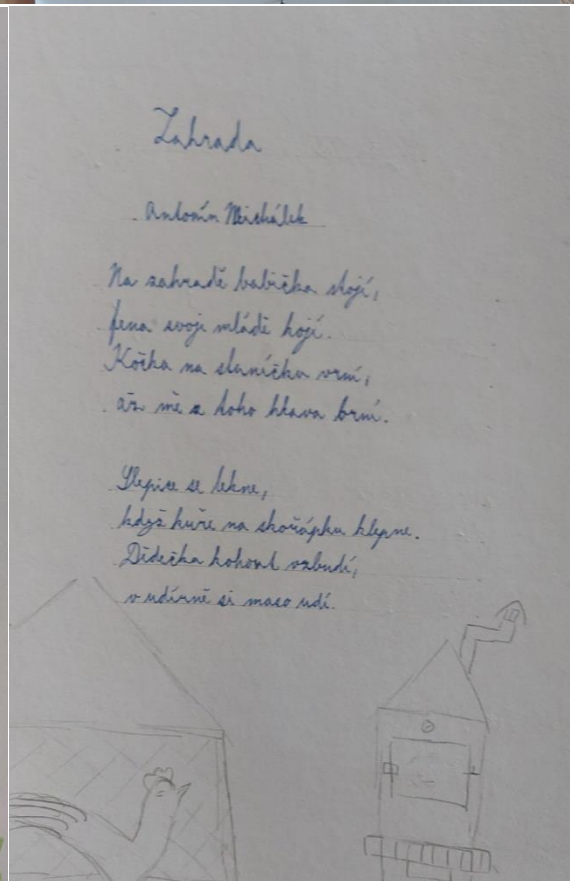 Zahrada
Antonín Michálek
Na zahradě babička stojí,
fena svoje mládě kojí.
Kočka na sluníčku vrní,
až mě z toho hlava brní.
Slepice se lekne,
když kuře na skořápku klepne.
Dědečka kohout vzbudí,
v udírně si maso udí.